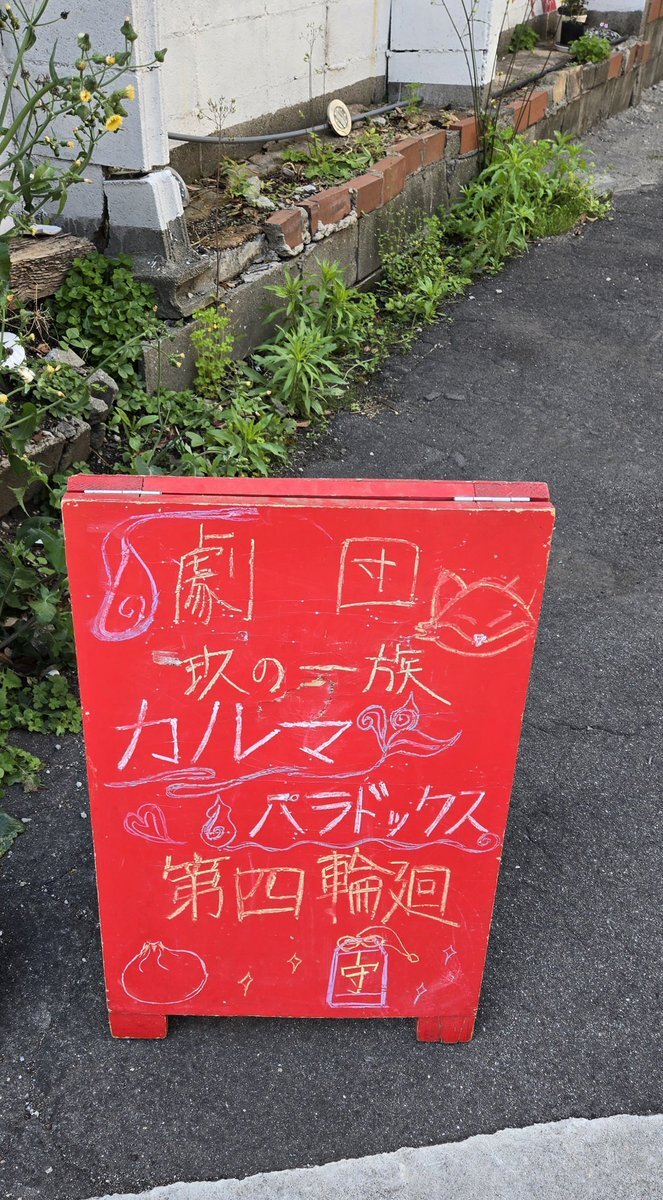 劇団
玖の一族
カルマ
パラドックス
第四輪廻
守